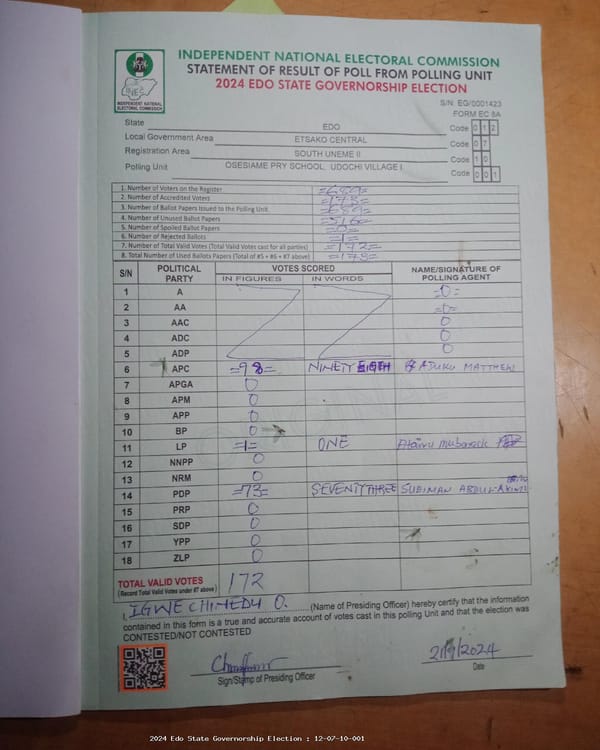 INDEPENDENT NATIONAL ELECTORAL COMMISSION
STATEMENT OF RESULT OF POLL FROM POLLING UNIT
2024 EDO STATE GOVERNORSHIP ELECTION
INEC
INDEPENDENT NATIONAL ELECTORAL COMMISSION
S/N: EG/0001423
FORM EC 8A
State EDO Code 0 1 2
Local Government Area ETSAKO CENTRAL Code 0 7
Registration Area SOUTH UNEME II Code 1 0
Polling Unit OSESIAME PRY SCHOOL, UDOCHI VILLAGE I Code 0 0 1
1. Number of Voters on the Register =689=
2. Number of Accredited Voters =173=
3. Number of Ballot Papers Issued to the Polling Unit =689=
4. Number of Unused Ballot Papers =516=
5. Number of Spoiled Ballot Papers =0=
6. Number of Rejected Ballots =1=
7. Number of Total Valid Votes (Total Valid Votes cast for all parties) =172=
8. Total Number of Used Ballots Papers (Total of #5 + #6 + #7 above) =173=
S/N POLITICAL PARTY VOTES SCORED NAME/SIGNATURE OF POLLING AGENT
IN FIGURES IN WORDS
1 A =0=
2 AA =0=
3 AAC 0
4 ADC 0
5 ADP 0
6 APC =98= NINETY EIGHT ADUKU MATTHEW
7 APGA 0
8 APM 0
9 APP 0
10 BP 0
11 LP =1= ONE Mubarack
12 NNPP 0
13 NRM 0
14 PDP =73= SEVENTY THREE SUBIMAN ABDUL-
15 PRP 0
16 SDP 0
17 YPP 0
18 ZLP 0
TOTAL VALID VOTES 172
(Record Total Valid Votes under #7 above)
I, IGWE CHINEDU O. (Name of Presiding Officer) hereby certify that the information
contained in this form is a true and accurate account of votes cast in this polling Unit and that the election was
CONTESTED/NOT CONTESTED
21/9/2024
Sign/Stamp of Presiding Officer Date
2024 Edo State Governorship Election : 12-07-10-001